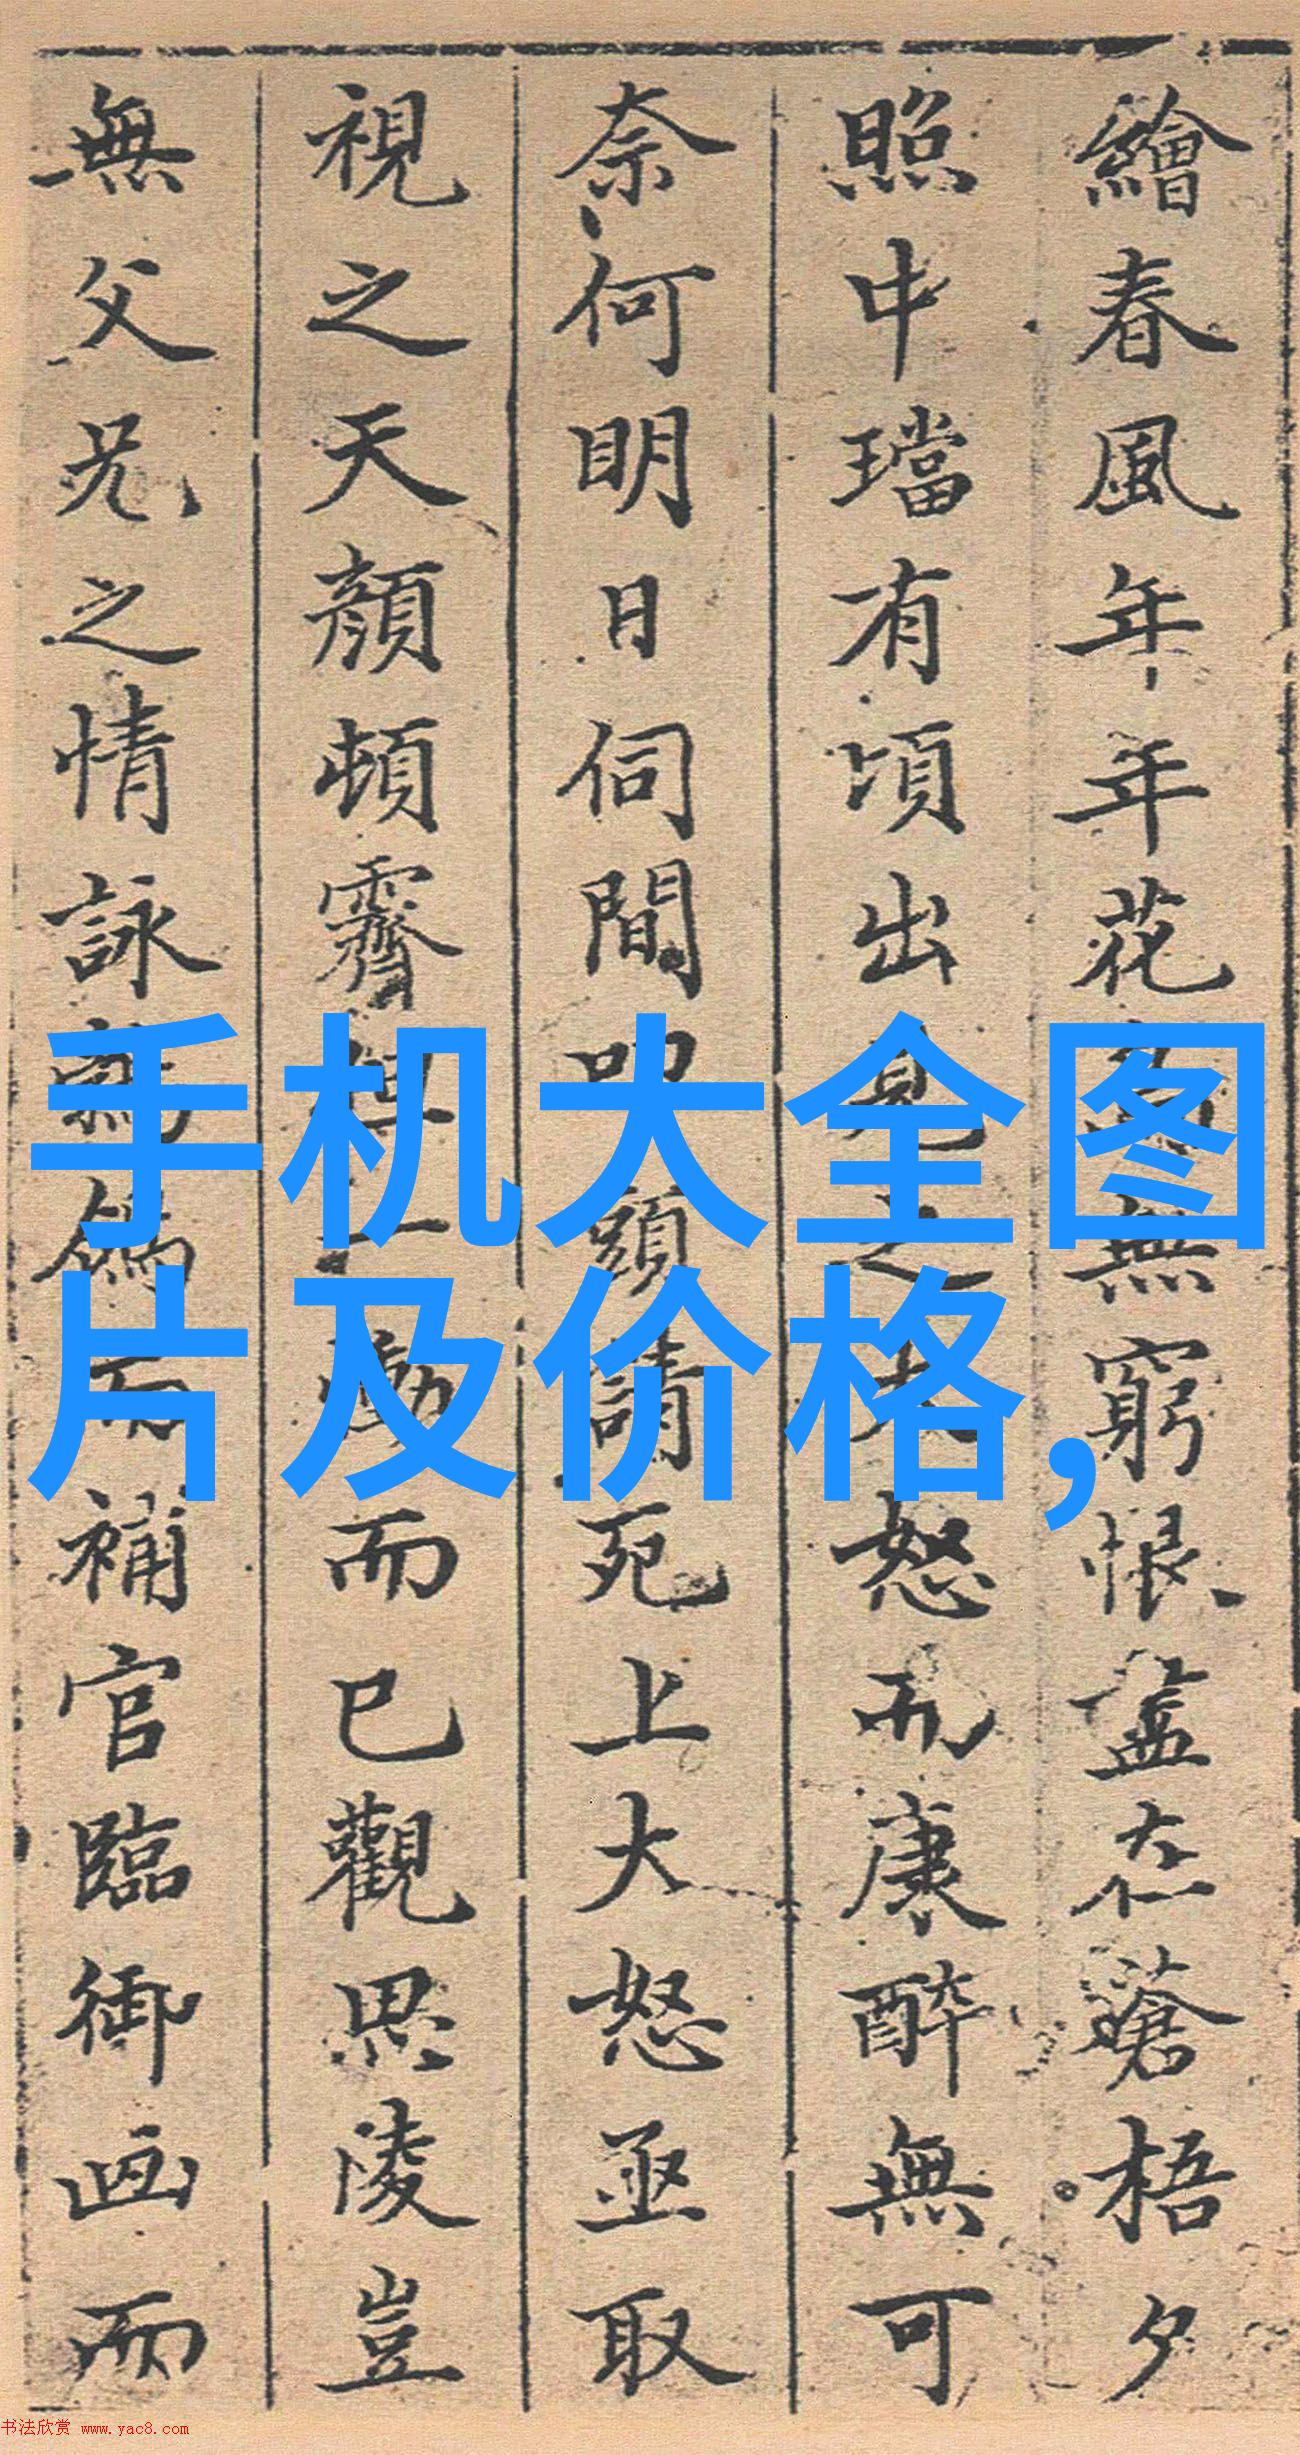 繪春風年年花鳥無窮恨盡在蒼梧夕
照中璫有頃出見之大怒而康醉無可
奈何明日伺間叩頭請死上大怒亟取
視之天顏頓霽但一慟而已觀思陵豈
無父兄之情詠鵓鴿而補官臨御画而
手机大全图
片及价格,
书法欣赏 www.yac8.com